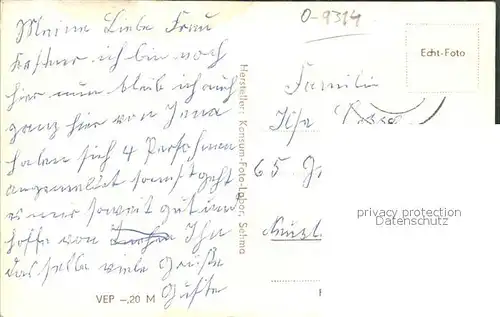 Meine Liebe Frau
ich bin noch
hier nun bleib ich auch
ganz hier von Jena
haben sich 4 Personen
angemeldet sonst geht
es mir soweit gut und
hoffe von Ihn
das selbe viele Grüße
VEP -,20 M
Hersteller: Konsum-Foto-Labor, Sehma
O-9314
Echt-Foto
Familie
Ilse
65 G
privacy protection
Copyright